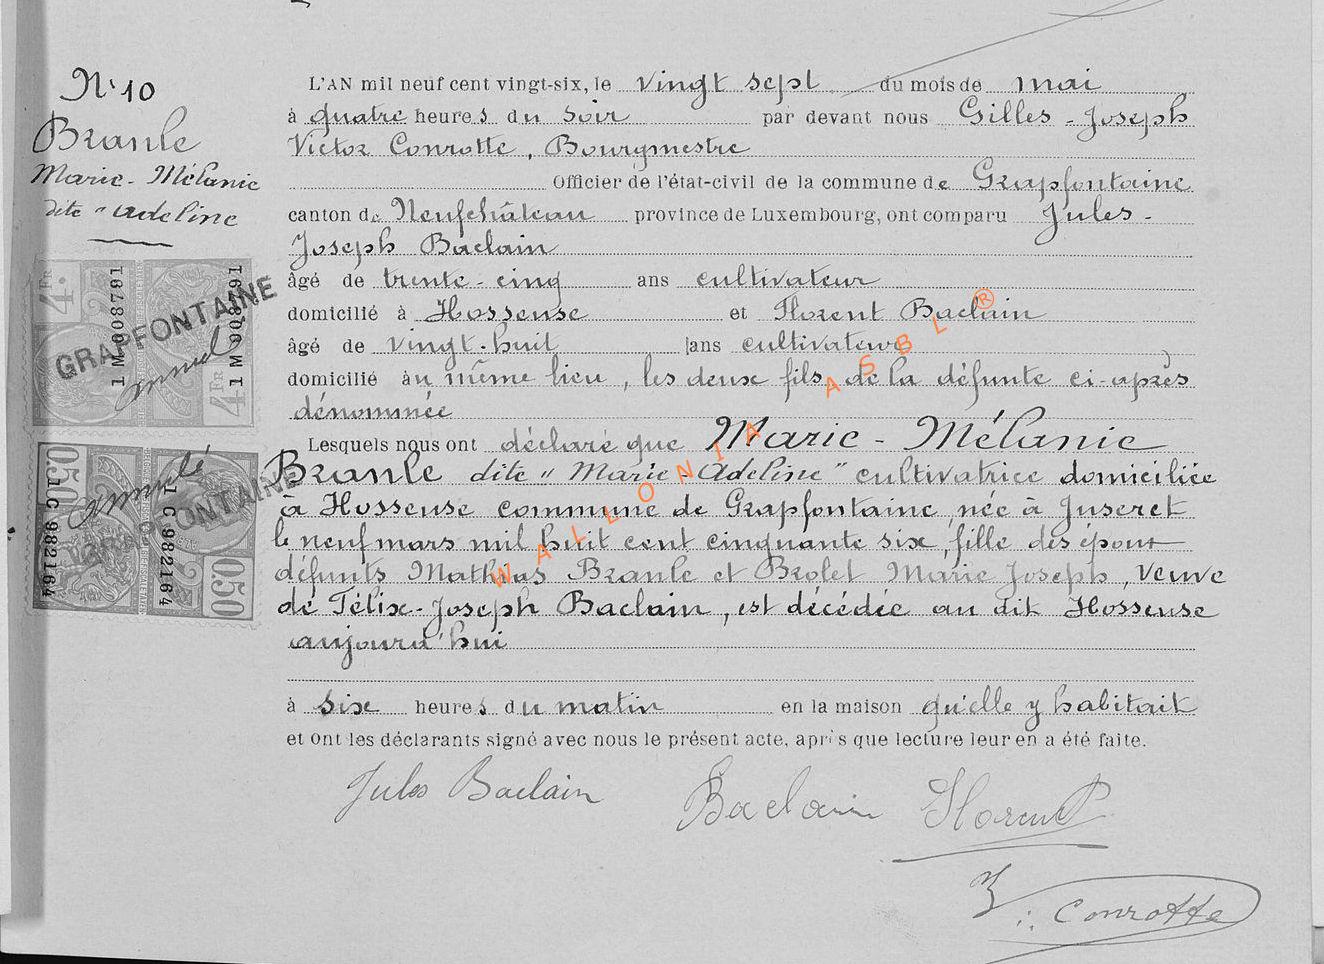 N° 10
Branle
Marie-Mélanie
dite "Adeline
L'AN mil neuf cent vingt-six, le vingt sept du mois de mai
à quatre heures du soir par devant nous Gilles-Joseph
Victor Conrotte, Bourgmestre
Officier de l'état-civil de la commune de Grapfontaine
canton de Neufchâteau province de Luxembourg, ont comparu Jules-
Joseph Baclain
âgé de trente-cinq ans cultivateur
domicilié à Hosseuse et Florent Baclain
âgé de vingt-huit ans cultivateurs
domicilié au même lieu, les deux fils de la défunte ci-après
dénommée
Lesquels nous ont déclaré que Marie-Mélanie
Branle dite "Marie-Adeline" cultivatrice domiciliée
à Hosseuse commune de Grapfontaine née à Juseret
le neuf mars mil huit cent cinquante six, fille des époux
défunts Mathias Branle et Brolet Marie Joseph, veuve
de Félix-Joseph Baclain, est décédée au dit Hosseuse
aujourd'hui
à six heures du matin en la maison qu'elle y habitait
et ont les déclarants signé avec nous le présent acte, après que lecture leur en a été faite.
Jules Baclain
Baclain Florent
Conrotte
4 FR
1 M 008791
1 M 008791
4 FR
GRAPFONTAINE
annulé
050
1 C 982164
1 C 982164
050
GRAPFONTAINE
annulé
WALLONIA ASBL ®